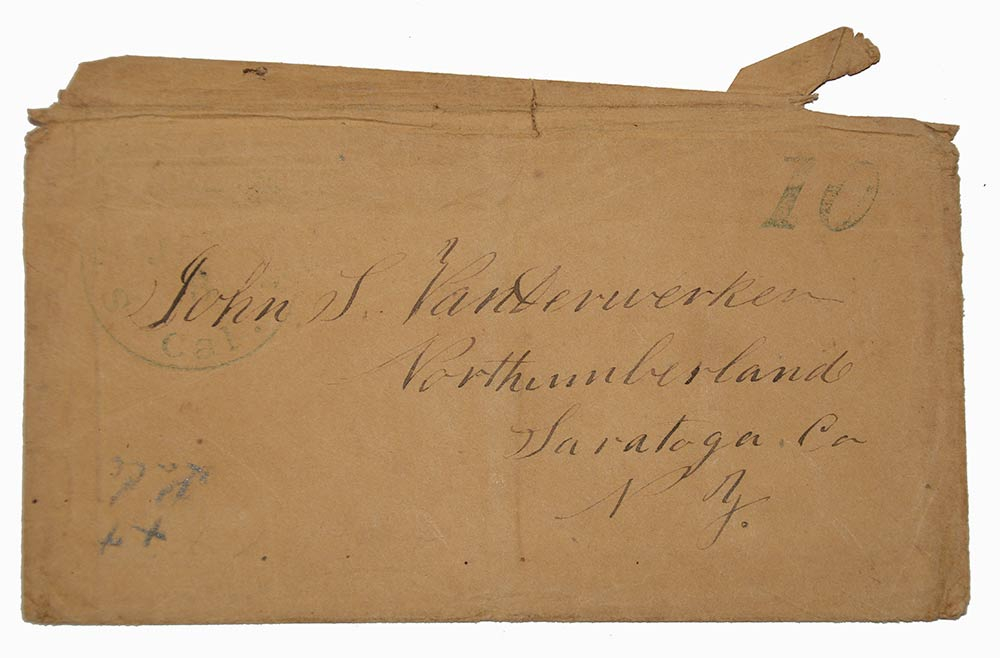 10
John S. Vanderwerker
Northumberland
Saratoga. Co
N Y.
Cal.